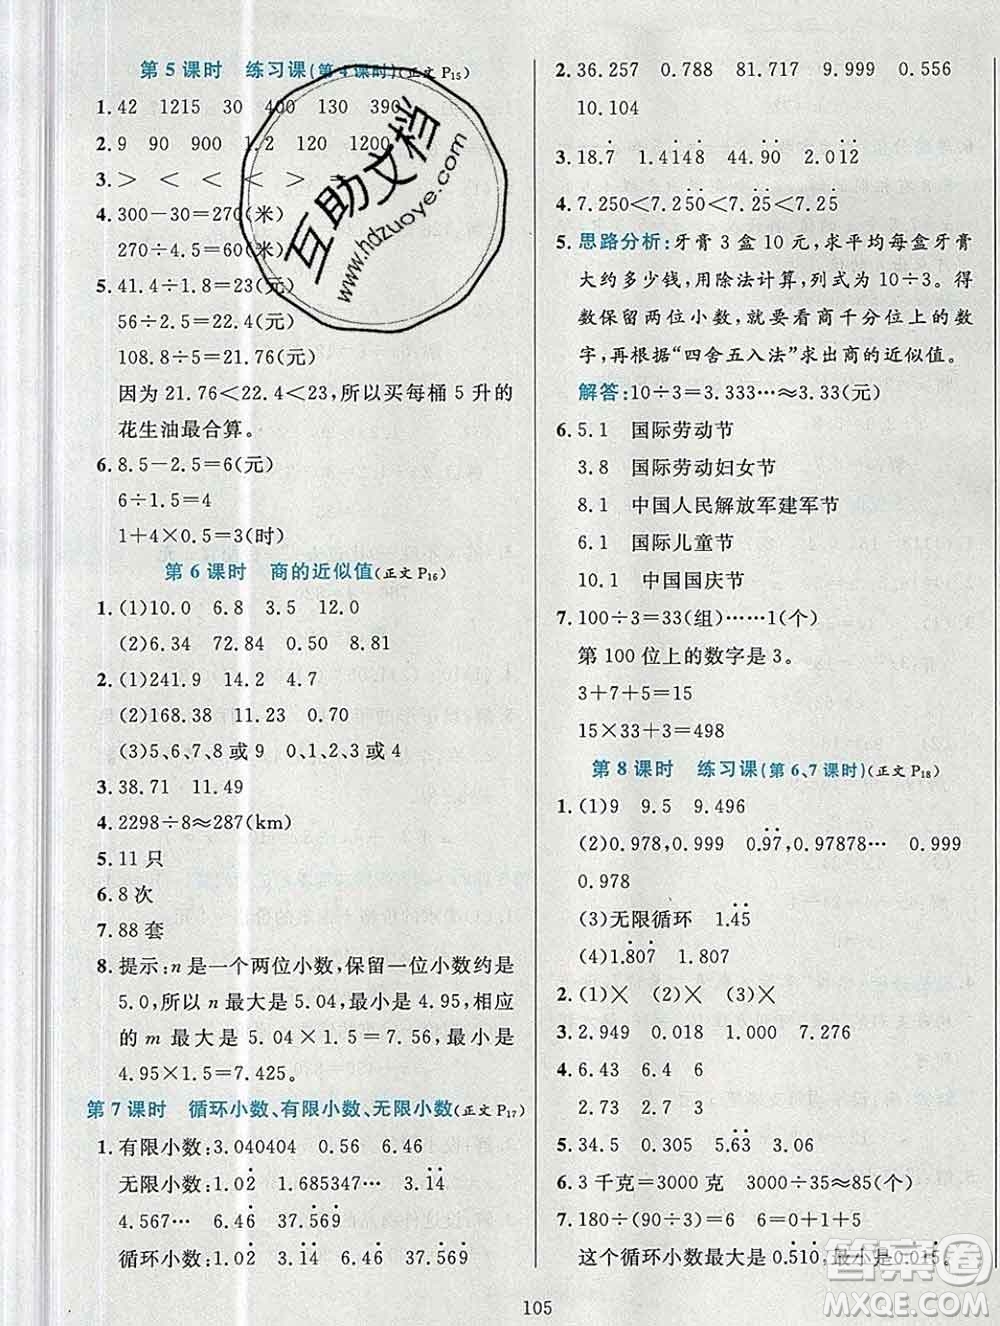 第 5 课时　练习课(第 4 课时)(正文 P15)
1. 42　1215　30　400　130　390
2. 9　90　900　1.2　120　1200
3. ＞　＜　＜　＜　＞
4. 300－30＝270(米)
270÷4.5＝60(米)
5. 41.4÷1.8＝23(元)
56÷2.5＝22.4(元)
108.8÷5＝21.76(元)
因为 21.76＜22.4＜23，所以买每桶 5 升的
花生油最合算。
6. 8.5－2.5＝6(元)
6÷1.5＝4
1＋4×0.5＝3(时)
第 6 课时　商的近似值(正文 P16)
1. (1)10.0　6.8　3.5　12.0
(2)6.34　72.84　0.50　8.81
2. (1)241.9　14.2　4.7
(2)168.38　11.23　0.70
(3)5、6、7、8 或 9　0、1、2、3 或 4
3. 38.71　11.49
4. 2298÷8≈287(km)
5. 11 只
6. 8 次
7. 88 套
8. 提示：n 是一个两位小数，保留一位小数约是
5.0，所以 n 最大是 5.04，最小是 4.95，相应
的 m 最大是 5.04×1.5＝7.56，最小是
4.95×1.5＝7.425。
第 7 课时　循环小数、有限小数、无限小数(正文 P17)
1. 有限小数：3.040404　0.56　6.46
无限小数：1.02̇　1.685347…　3.1̇4̇
4.567…　6.46̇　37.5̇69̇
循环小数：1.02̇　3.1̇4̇　6.46̇　37.5̇69̇
2. 36.257　0.788　81.717　9.999　0.556
10.104
3. 18.7̇　1.4̇148̇　44.90̇　2.01̇2̇
4. 7.250＜7.2̇50̇＜7.25̇＜7.2̇5̇
5. 思路分析：牙膏 3 盒 10 元，求平均每盒牙膏
大约多少钱，用除法计算，列式为 10÷3。得
数保留两位小数，就要看商千分位上的数
字，再根据“四舍五入法”求出商的近似值。
解答：10÷3＝3.333…≈3.33(元)
6. 5.1　国际劳动节
3.8　国际劳动妇女节
8.1　中国人民解放军建军节
6.1　国际儿童节
10.1　中国国庆节
7. 100÷3＝33(组)……1(个)
第 100 位上的数字是 3。
3＋7＋5＝15
15×33＋3＝498
第 8 课时　练习课(第 6、7 课时)(正文 P18)
1. (1)9　9.5　9.496
(2)0.978，0.999　0.9̇7̇，0.97878…　0.999
0.978
(3)无限循环　1.4̇5̇
(4)1.8̇07̇　1.807
2. (1)×　(2)×　(3)×
3. 2.949　0.018　1.000　7.090
4. 3.6　7.33　2.67　0.6　7.63
2.73　2.73
5. 34.5　0.143　5.6̇3̇　3.06
6. 3 千克＝3000 克　3000÷35≈85(个)
7. 180÷(90÷3)＝6　6＝0＋1＋5
这个循环小数最大是 0.5̇10̇，最小是 0.0̇15̇。
105
互助文档
www.hdzuoye.com
答案圈
MXQE.COM